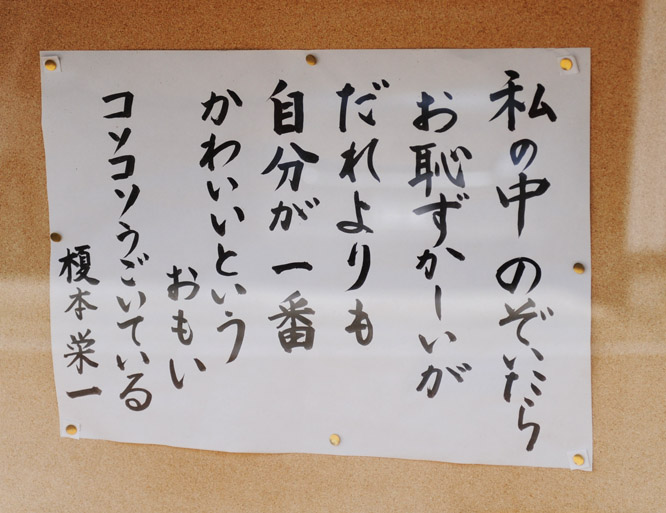 私の中 のぞいたら
お恥ずかーいが
だれよりも
自分が一番
かわいいという
おもい
コソコソうごいている
榎本栄一